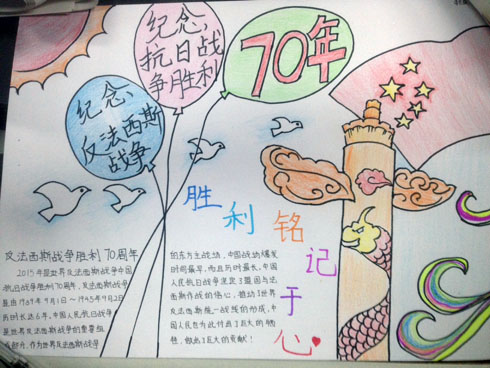 纪念
抗日战
争胜利
70年
纪念
反法西斯
战争
胜利铭记于心
反法西斯战争胜利70周年
2015年是世界反法西斯战争中国
抗日战争胜利70周年，反法西斯战争
是由1939年9月1日～1945年9月2日
历时长达6年，中国人民抗日战争
是世界反法西斯战争的重要组
成部分，作为世界反法西斯战争
的东方主战场，中国战场爆发
时间最早，而且历时最长，中国
人民抗日战争坚定了盟国与法
西斯作战的信心，推动了世界
反法西斯统一战线的形成，中
国人民也为此付出了巨大的牺
牲，做出了巨大的贡献！